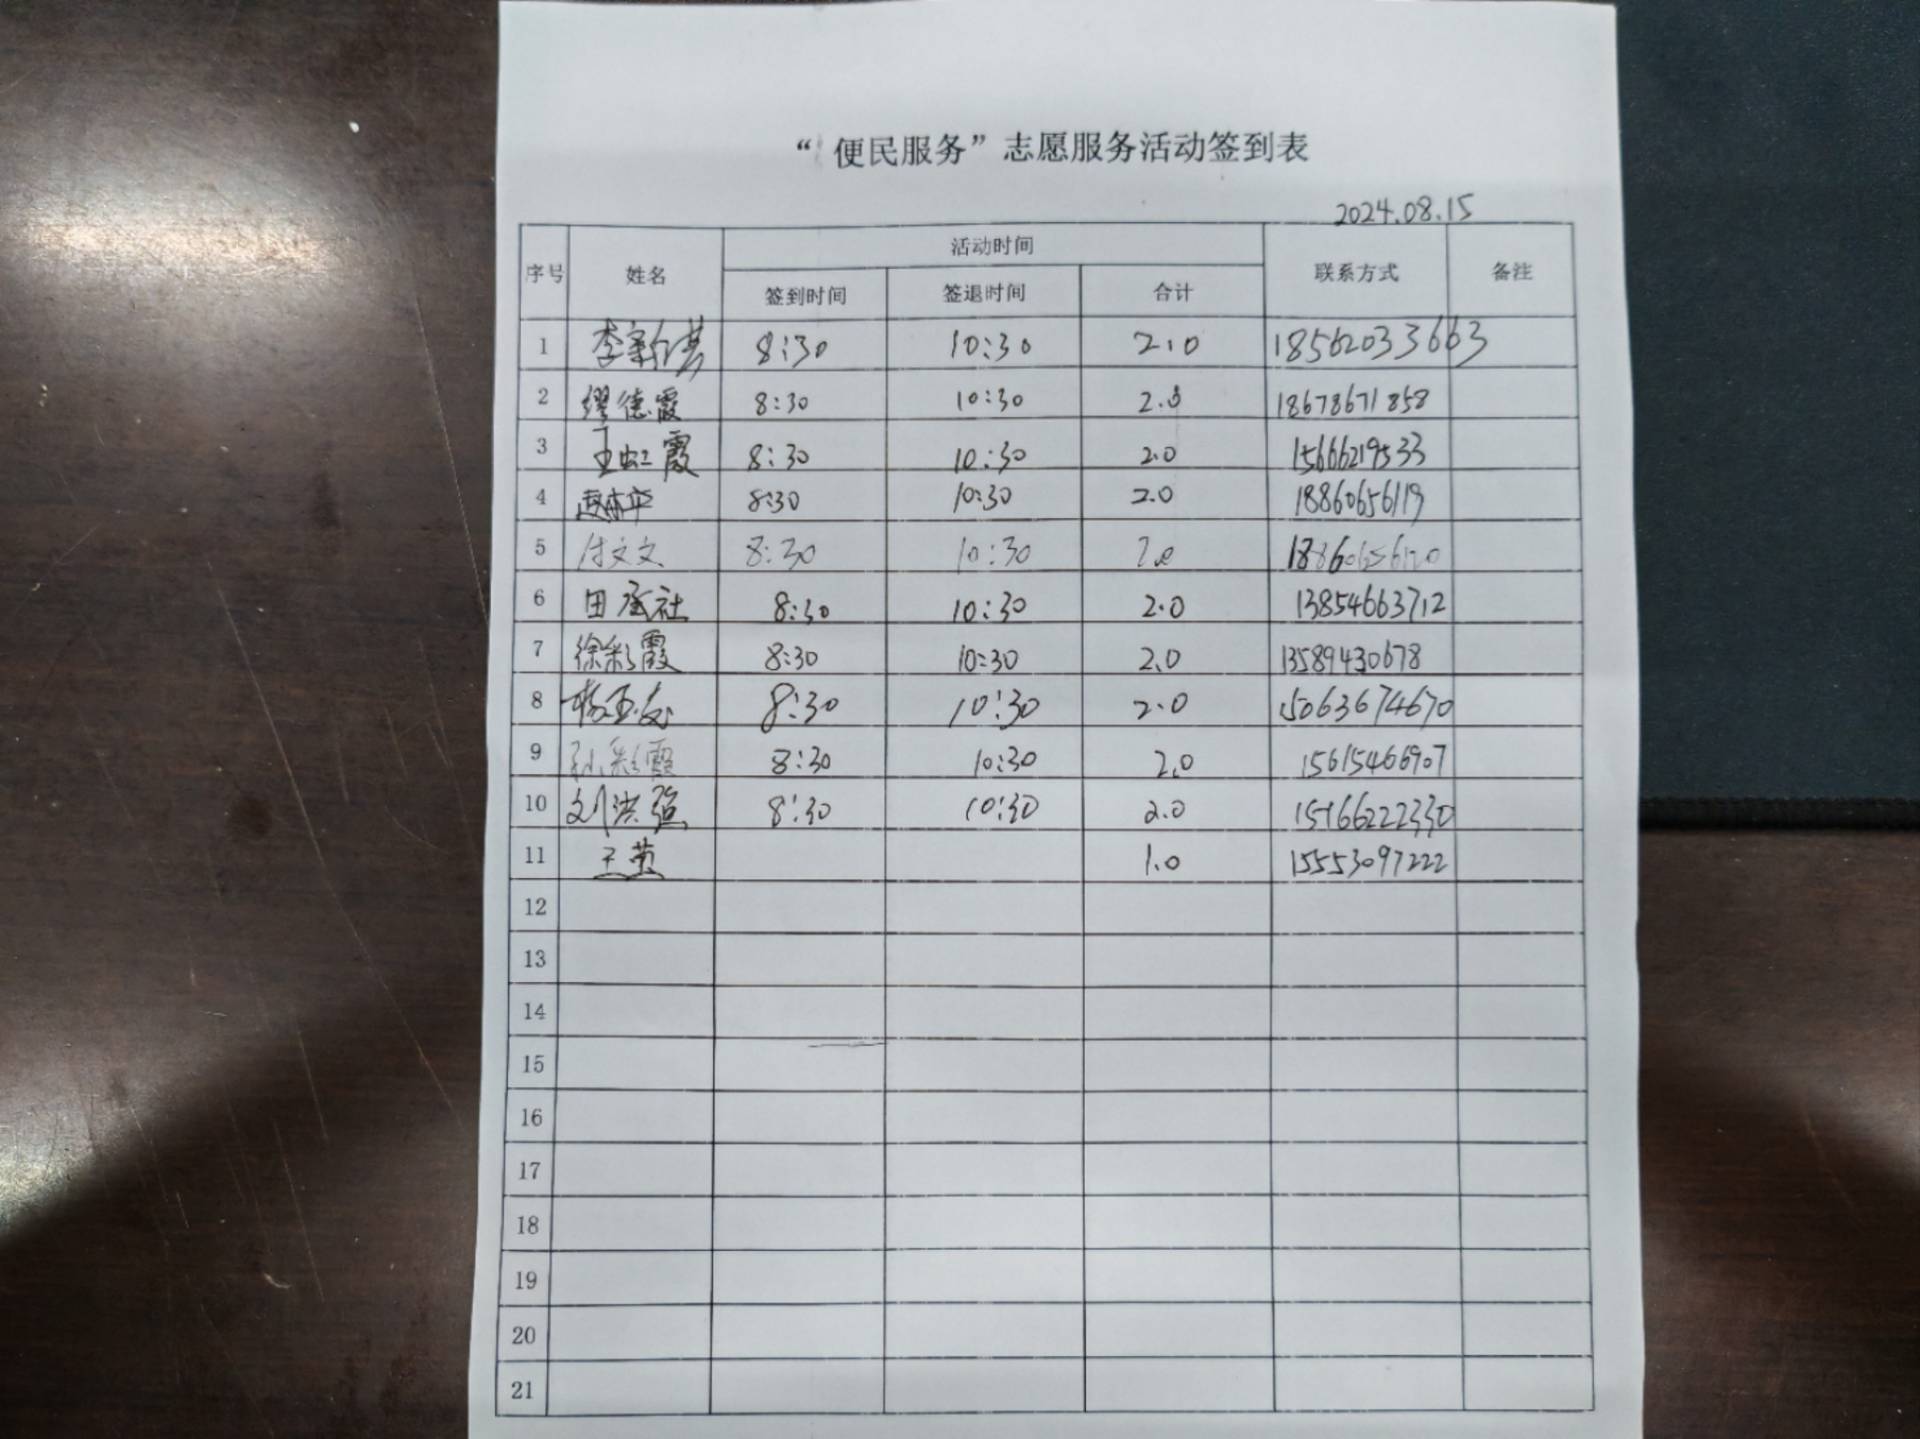 “ 便民服务”志愿服务活动签到表
2024.08.15
序号 姓名 活动时间 联系方式 备注
签到时间 签退时间 合计
1 8:30 10:30 2.0 18562033663
2 缪德霞 8:30 10:30 2.0 18678671858
3 王虹霞 8:30 10:30 2.0 15666219533
4 8:30 10:30 2.0 18860656119
5 付文文 8:30 10:30 2.0 18860656120
6 田承社 8:30 10:30 2.0 13854663712
7 徐彩霞 8:30 10:30 2.0 13589430678
8 8:30 10:30 2.0 15063674670
9 孙彩霞 8:30 10:30 2.0 15615466907
10 刘洪强 8:30 10:30 2.0 15166222330
11 王萤 1.0 15553097222
12
13
14
15
16
17
18
19
20
21